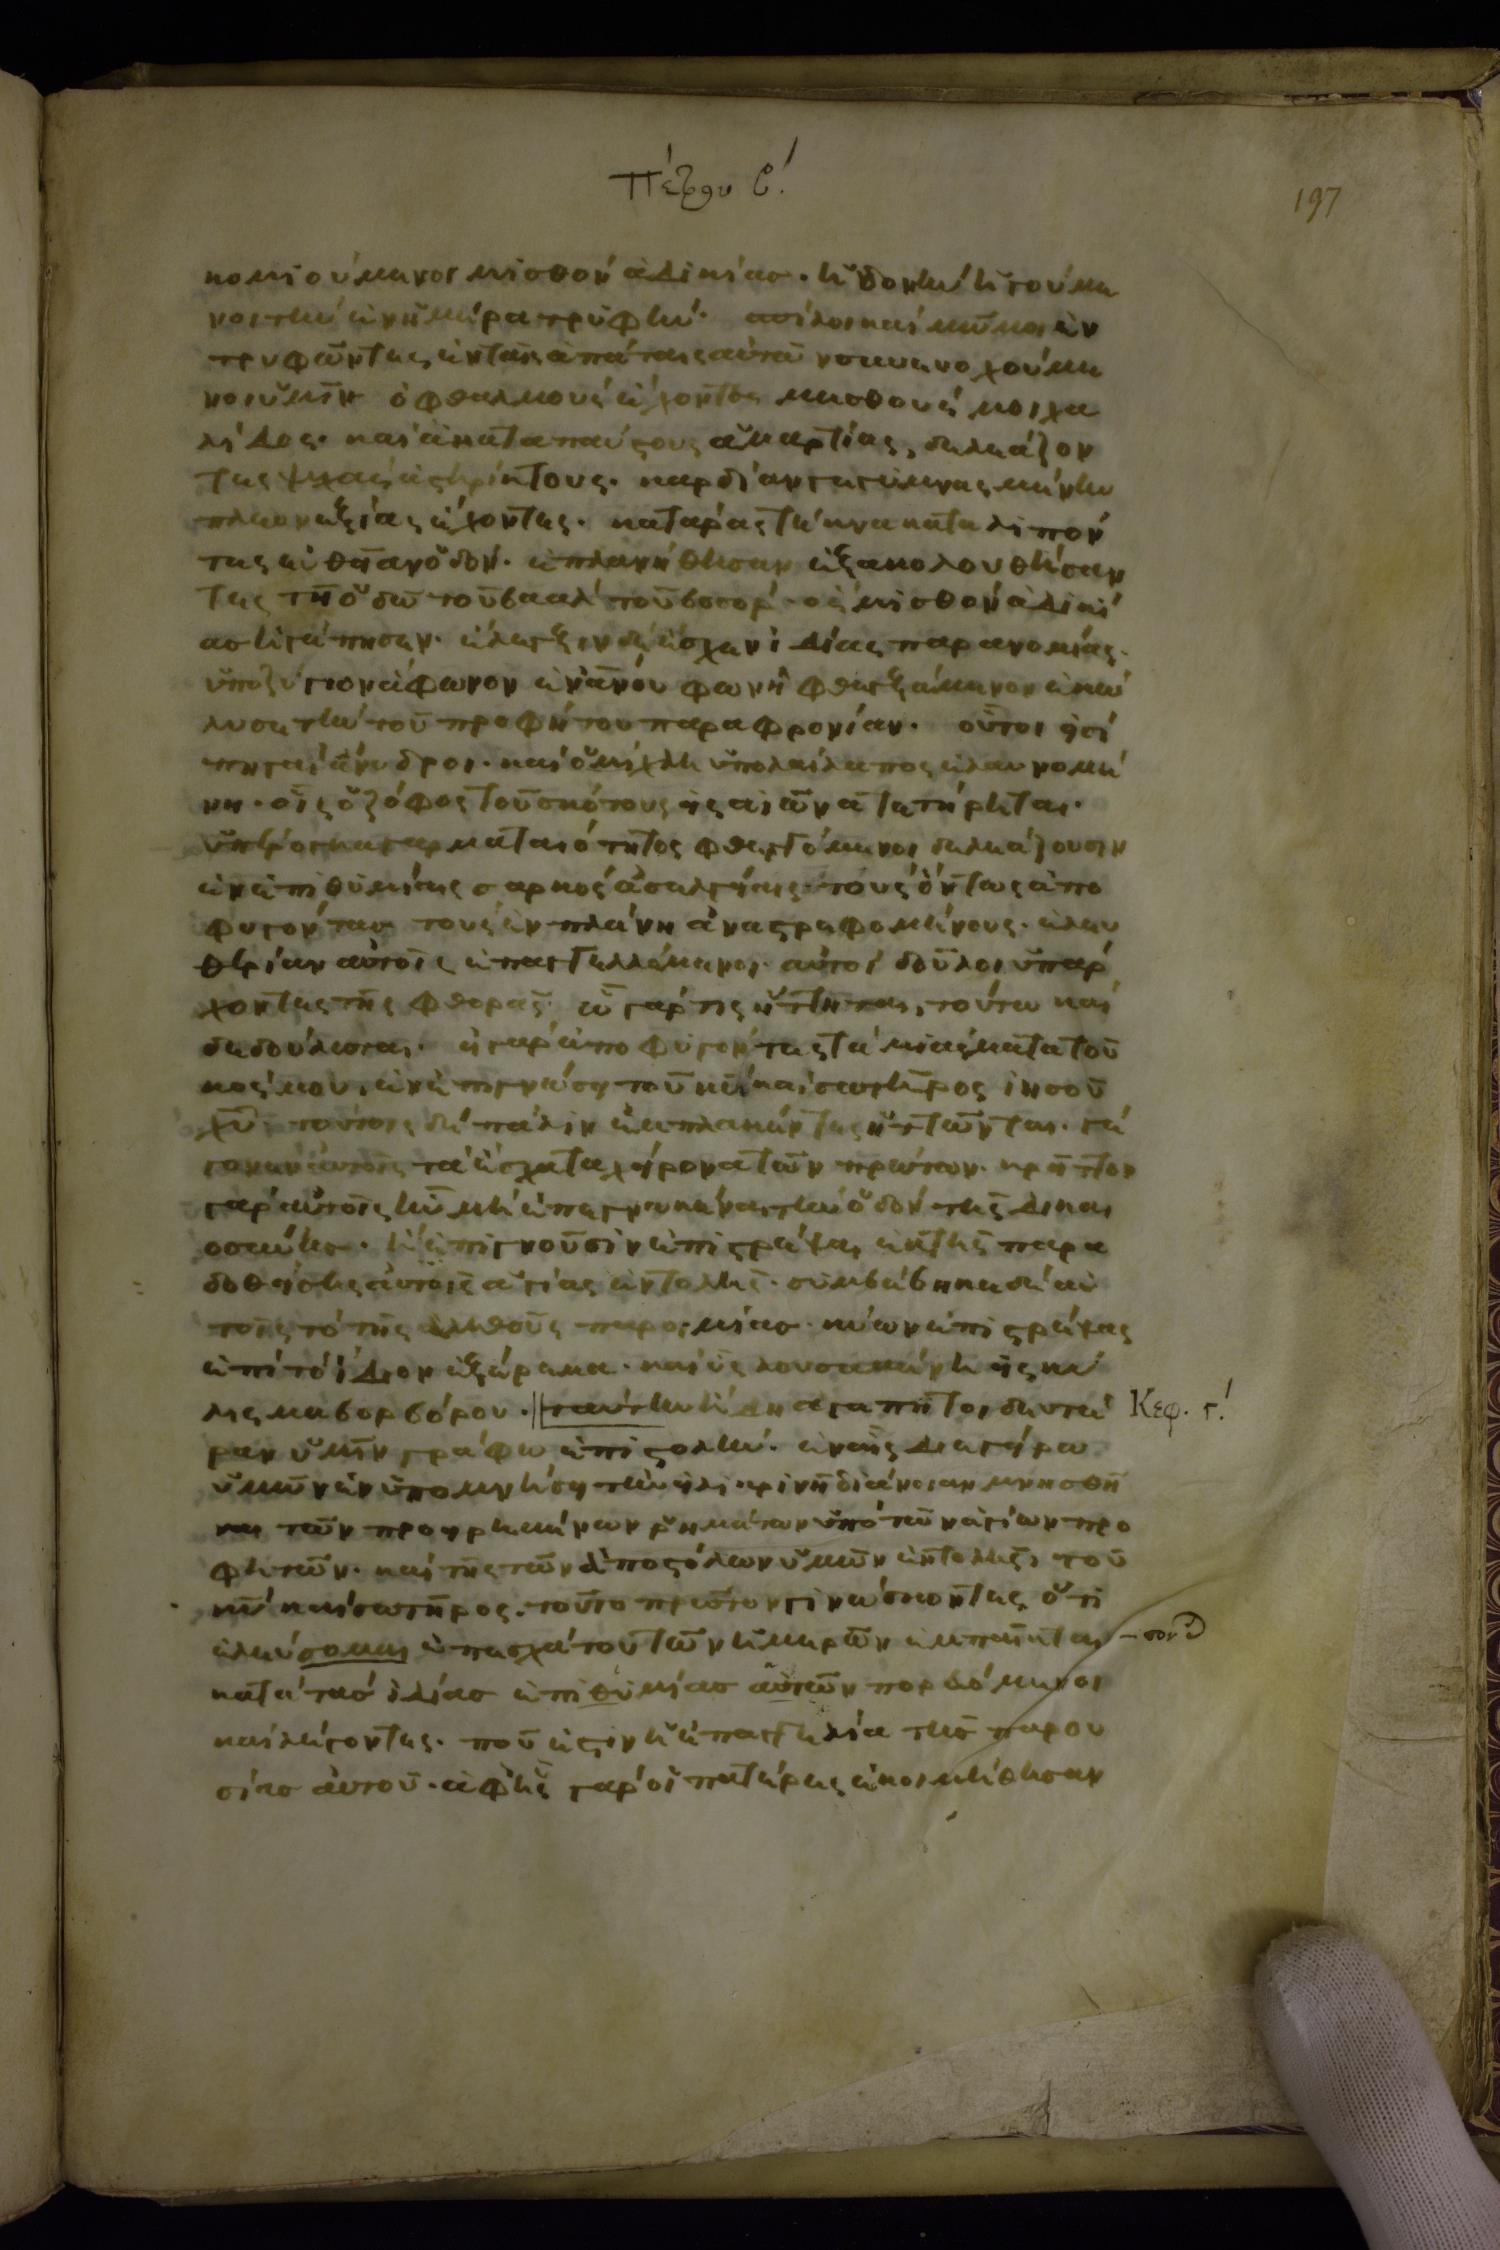 Πέτρου β′.
197
κομιούμενοι μισθὸν ἀδικίασ· ἡδονὴν ἡγούμε
νοι τὴν ἐν ἡμέρα τρυφήν· σπίλοι καὶ μῶμοι ἐν
τρυφῶντες ἐν ταῖς ἀπάταις αὐτῶν συνευωχούμε
νοι ὑμῖν ὀφθαλμοὺς ἔχοντες μεσθοὺς μοιχα
λίδος· καὶ ἀκαταπαύστους ἁμαρτίας, δελεάζον
τες ψυχὰς ἀστηρίκτους· καρδίαν γεγυμνασμένην
πλεονεξίας ἔχοντες· κατάρας τέκνα καταλιπόν
τες εὐθεῖαν ὁδόν· ἐπλανήθησαν ἐξακολουθήσαν
τες τῆ ὁδῶ τοῦ βαλαὰμ τοῦ βοσόρ· ὃς μισθὸν ἀδικί
ας ἠγάπησεν· ἔλεγξιν δὲ ἔσχεν ἰδίας παρανομίας·
ὑποζύγιον ἄφωνον ἐν ἀνου φωνῆ φθεγξάμενον ἐκώ
λυσε τὴν τοῦ προφήτου παραφρονίαν· οὗτοι εἰσὶ
πηγαὶ ἄνυδροι· καὶ ὁμίχλη ὑπὸ λαίλαπος ἐλαυνομέ
νη· οἷς ὁ ζόφος τοῦ σκότους εἰς αἰῶνα τετήρηται·
ὑπέρογκα γὰρ ματαιότητος φθεγγόμενοι δελεάζουσιν
ἐν ἐπιθυμίαις σαρκὸς ἀσελγείαις· τοὺς ὄντως ἀπο
φυγόντασ τοὺς ἐν πλάνη ἀναστρεφομένους· ἐλευ
θερίαν αὐτοῖς ἐπαγγελλόμενοι· αὐτοὶ δοῦλοι ὑπάρ
χοντες τῆς φθορᾶς· ὧ γάρ τις ἥττηται, τούτω καὶ
δεδούλωται· εἰ γὰρ ἀποφυγόντες τὰ μιάσματα τοῦ
κόσμου, ἐν ἐπιγνώσει τοῦ κυ καὶ σωτῆρος ἰησοῦ
χυ τούτοις δὲ πάλιν ἐμπλακέντες ἡττῶνται· γέ
γονεν αὐτοῖς τὰ ἔσχατα χείρονα τῶν πρώτων· κρεῖττον
γὰρ αὐτοῖς ἦν μὴ ἐπεγνωκέναι τὴν ὁδὸν τῆς δικαι
οσύνης· ἢ ἐπιγνοῦσιν ἐπιστρέψαι ἐκ τῆς παρα
δοθείσης αὐτοῖς ἁγίας ἐντολῆς· συμβέβηκε δὲ αὐ
τοῖς τὸ τῆς ἀληθοῦς παροιμίασ· κύων ἐπιστρέψας
ἐπὶ τὸ ἴδιον ἐξέραμα· καὶ ὗς λουσαμένη εἰς κύ
λισμα βορβόρου· ταύτην ἤδη ἀγαπητοὶ δευτέ
Κεφ. γ′.
ραν ὑμῖν γράφω ἐπιστολήν· ἐν αἷς διεγείρω
ὑμῶν ἐν ὑπομνήσει τὴν εἰλικρινῆ διάνοιαν μνησθῆ
ναι τῶν προειρημένων ῥημάτων ὑπὸ τῶν ἁγίων προ
φητῶν· καὶ τῆς τῶν ἀποστόλων ὑμῶν ἐντολῆς, τοῦ
κυ καὶ σωτῆρος. τοῦτο πρῶτον γινώσκοντες, ὅτι
ἐλεύσομαι ἐπ' ἐσχάτου τῶν ἡμερῶν ἐμπαῖκται
κατὰ τὰσ ἰδίασ ἐπιθυμίασ αὐτῶν πορευόμενοι
καὶ λέγοντες· ποῦ ἐστιν ἡ ἐπαγγελία τῆς παρου
σίασ αὐτοῦ· ἀφ' ἧς γὰρ οἱ πατέρες ἐκοιμήθησαν